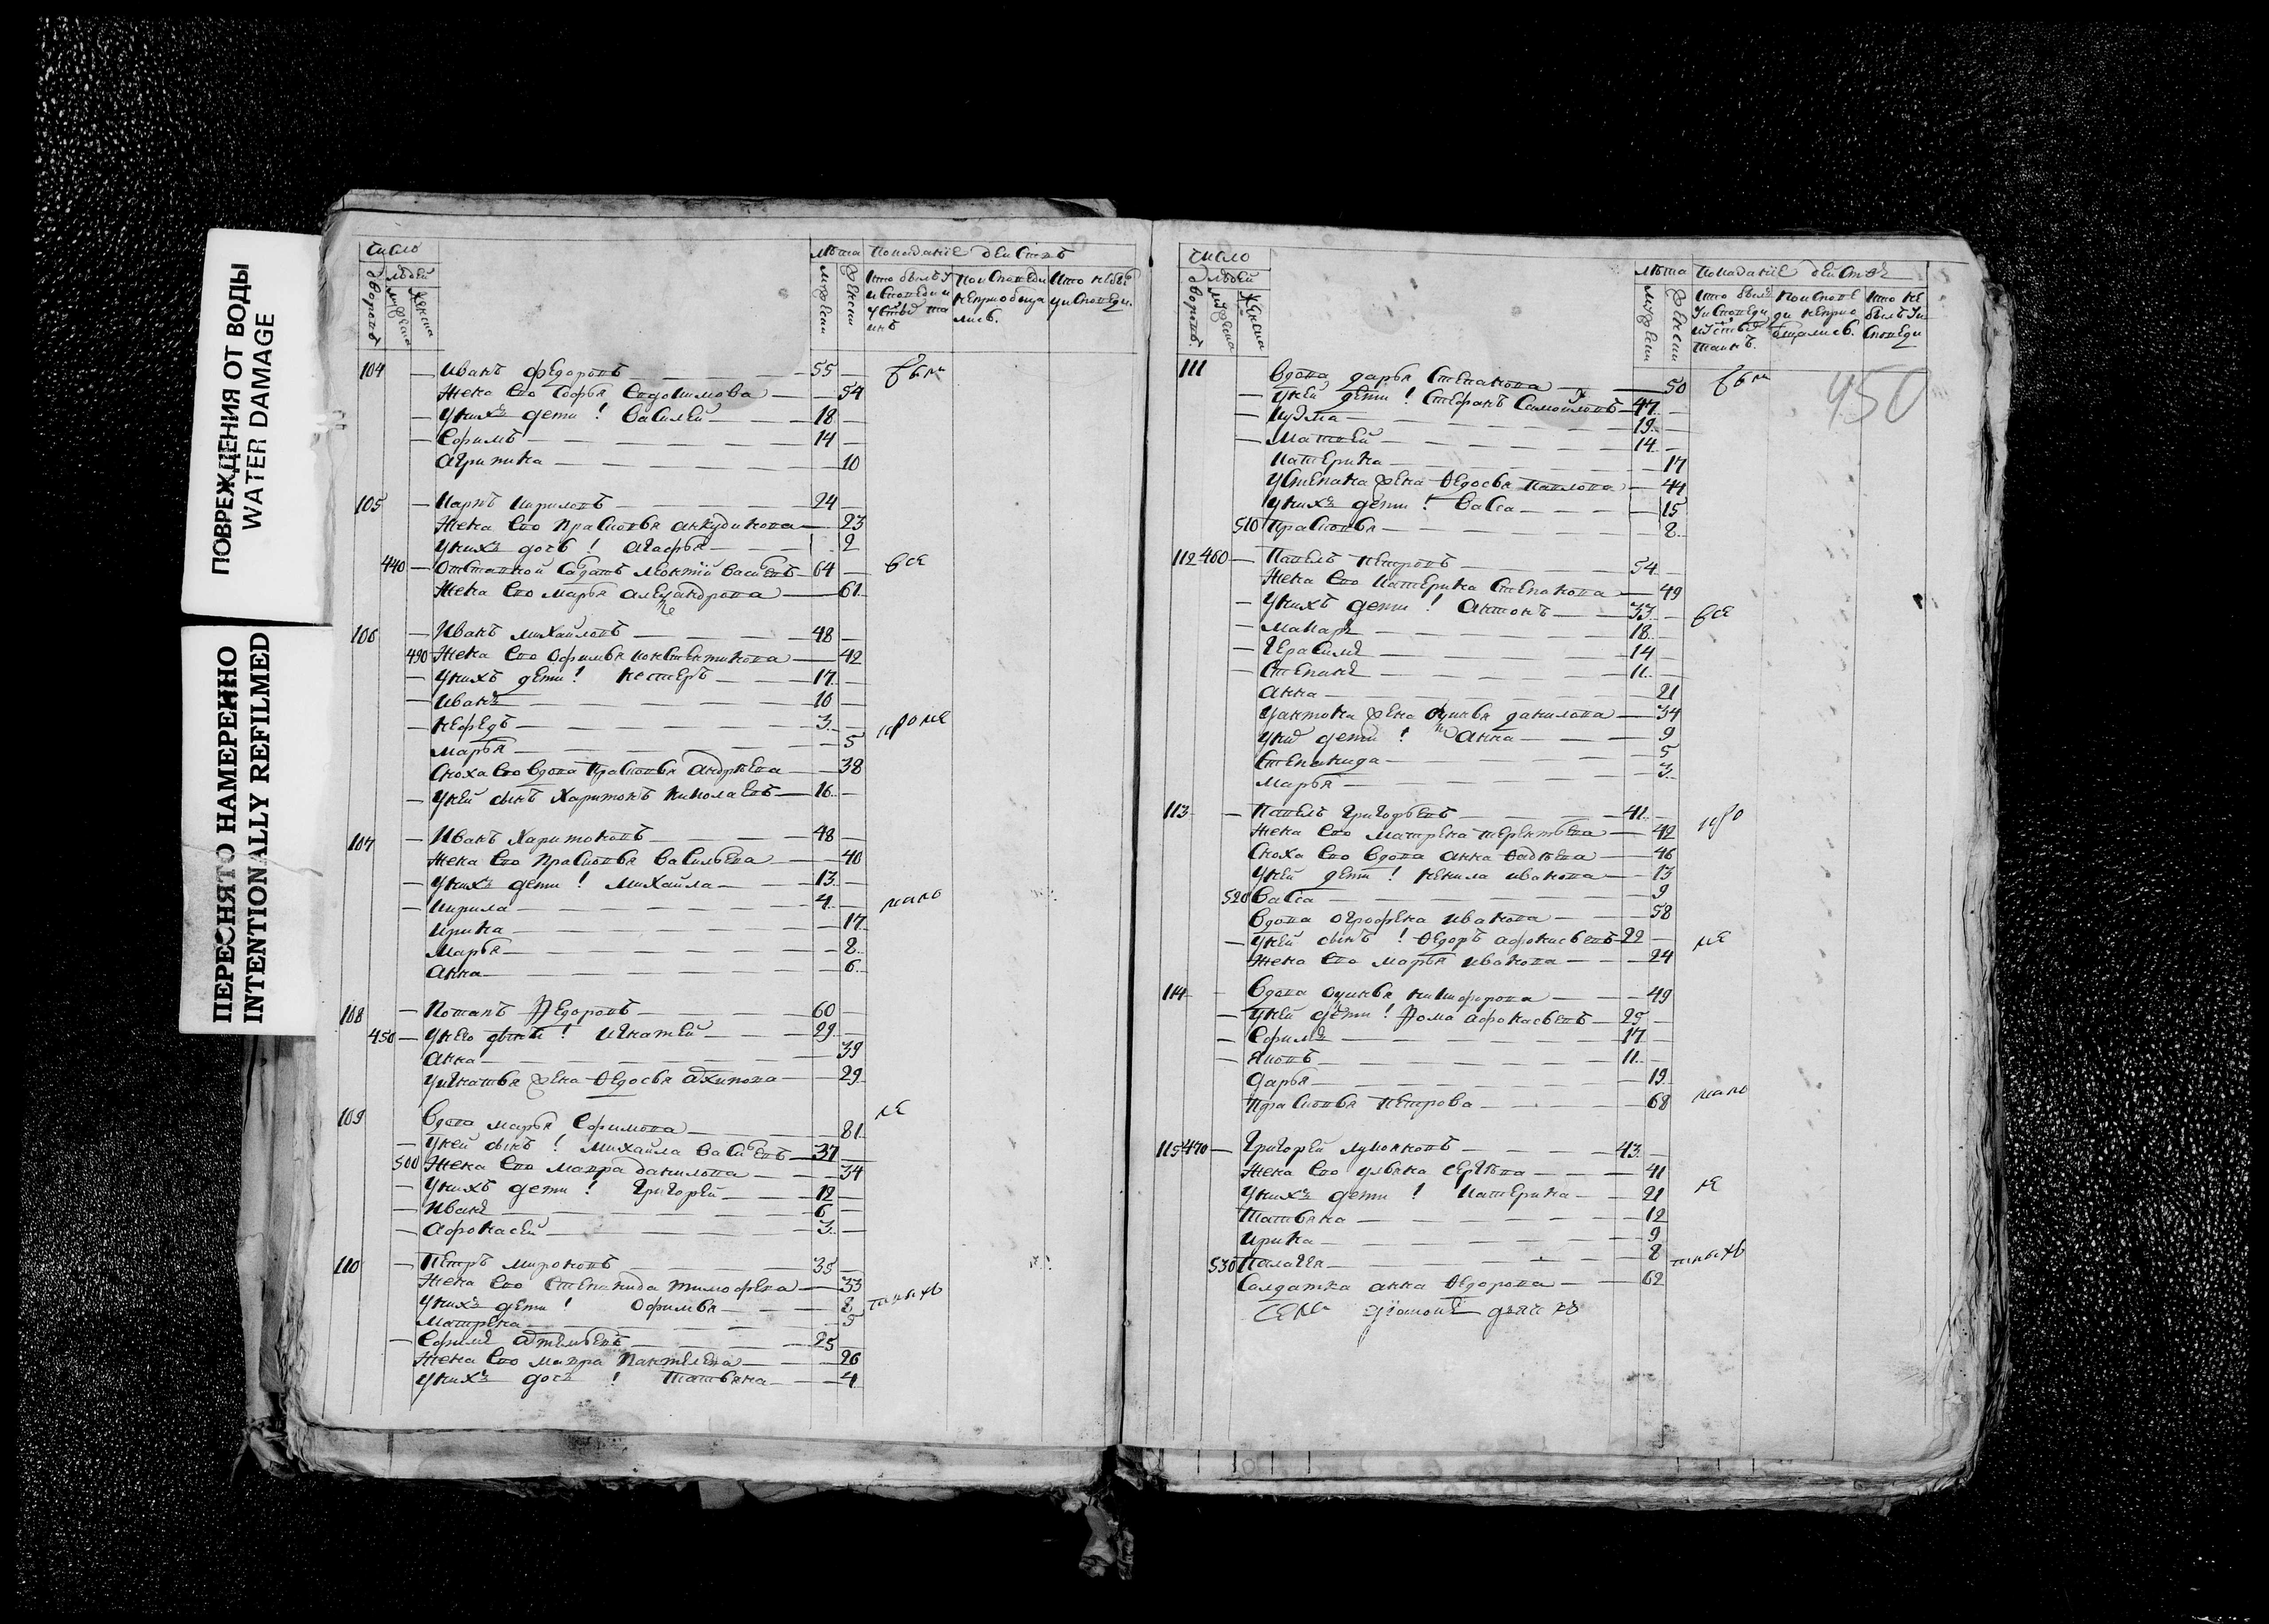 ПОВРЕЖДЕНИЯ ОТ ВОДЫ
WATER DAMAGE
ПЕРЕСНЯТО НАМЕРЕННО
INTENTIONALLY REFILMED
число
дворовъ
людей
мужеска
женска
лѣта
мужески
женски
Показанїе действъ
104 — Иванъ Федоровъ — 55 —
Жена Его Софья Евдокимова — 54
— У нихъ дети: Василей — 18 —
— Ефимъ — 14 —
Агрипина — 10
105 — Карпъ Кириловъ — 24 —
Жена Его Прасковья Анкудинова — 23
У нихъ дочь: Агафья — 2
440 — Отставной Солдатъ Леонтїй Васильевъ — 64 —
Жена Его Марья Александрова — 61
106 — Иванъ Михайловъ — 48 —
490 Жена Его Офимья Константинова — 42
— У нихъ дети: Нестеръ — 17 —
— Иванъ — 10 —
— Нефедъ — 3 —
Марья — 5
Сноха Его Вдова Прасковья Андрѣева — 38
— У ней сынъ Харитонъ Николаевъ — 16 —
107 — Иванъ Харитоновъ — 48 —
Жена Его Прасковья Васильева — 40
— У нихъ дети: Михайла — 13 —
— Кирила — 4 —
Ирина — 17
Марья — 8
Анна — 6
108 — Потапъ Федоровъ — 60 —
450 — У него дети: Игнатей — 29 —
Анна — 39
У Игнатья жена Ѳедосья Архипова — 29
109 Вдова Марья Ефимова — 81
— У ней сынъ: Михайла Васильевъ — 37 —
500 Жена Его Мавра Данилова — 34
— У нихъ дети: Григорей — 12 —
— Иванъ — 6 —
— Афонасей — 3 —
110 — Петръ Мироновъ — 35 —
Жена Его Степанида Тимофеева — 33
У нихъ дети: Офимья — 8
Матрена — 5
— Ефимъ — 25
Жена Его Мавра Пантелеева — 26
У нихъ дочь: Татьяна — 4
были
все
кроме
мало
ле
тныхъ
число
дворовъ
людей
мужеска
женска
лѣта
мужески
женски
Показанїе действъ
450
111 Вдова Дарья Степанова — 50
— У ней дети: Стефанъ Самойловъ — 47 —
— Кузма — 19 —
— Матвей — 14 —
Катерина — 17
У Степана жена Ѳедосья Павлова — 44
У нихъ дети: Васса — 15
510 Прасковья — 8
112 460 — Павелъ Петровъ — 54
Жена Его Катерина Степанова — 49
— У нихъ дети: Антонъ — 33 —
— Макаръ — 18 —
— Герасимъ — 14 —
— Степанъ — 11 —
Анна — 21
У Антона жена Данилова — 34
У нихъ дети: Анна — 9
Степанида — 5
Марья — 3
113 — Павелъ Григорьевъ — 41 —
Жена Его Матрена Терентьева — 42
Сноха Его Вдова Анна Ѳадѣева — 46
У ней дети: Ненила Иванова — 13
520 Васса — 9
Вдова Огрофена Иванова — 58
— У ней сынъ: Ѳедоръ Афонасьевъ — 22 —
Жена Его Марья Иванова — 24
114 Вдова Никифорова — 49
— У ней дети: Фома Афонасьевъ — 25 —
— Ефимъ — 17 —
— Яковъ — 11 —
Дарья — 19
Прасковья Петрова — 68
115 470 — Григорей — 43 —
Жена Его Ульяна Сергѣева — 41
У нихъ дети: Катерина — 21
Татьяна — 12
Ирина — 9
530 Палагея — 8
Солдатка Анна Ѳедорова — 62
были
все
кро
ме
мало
ле
тныхъ